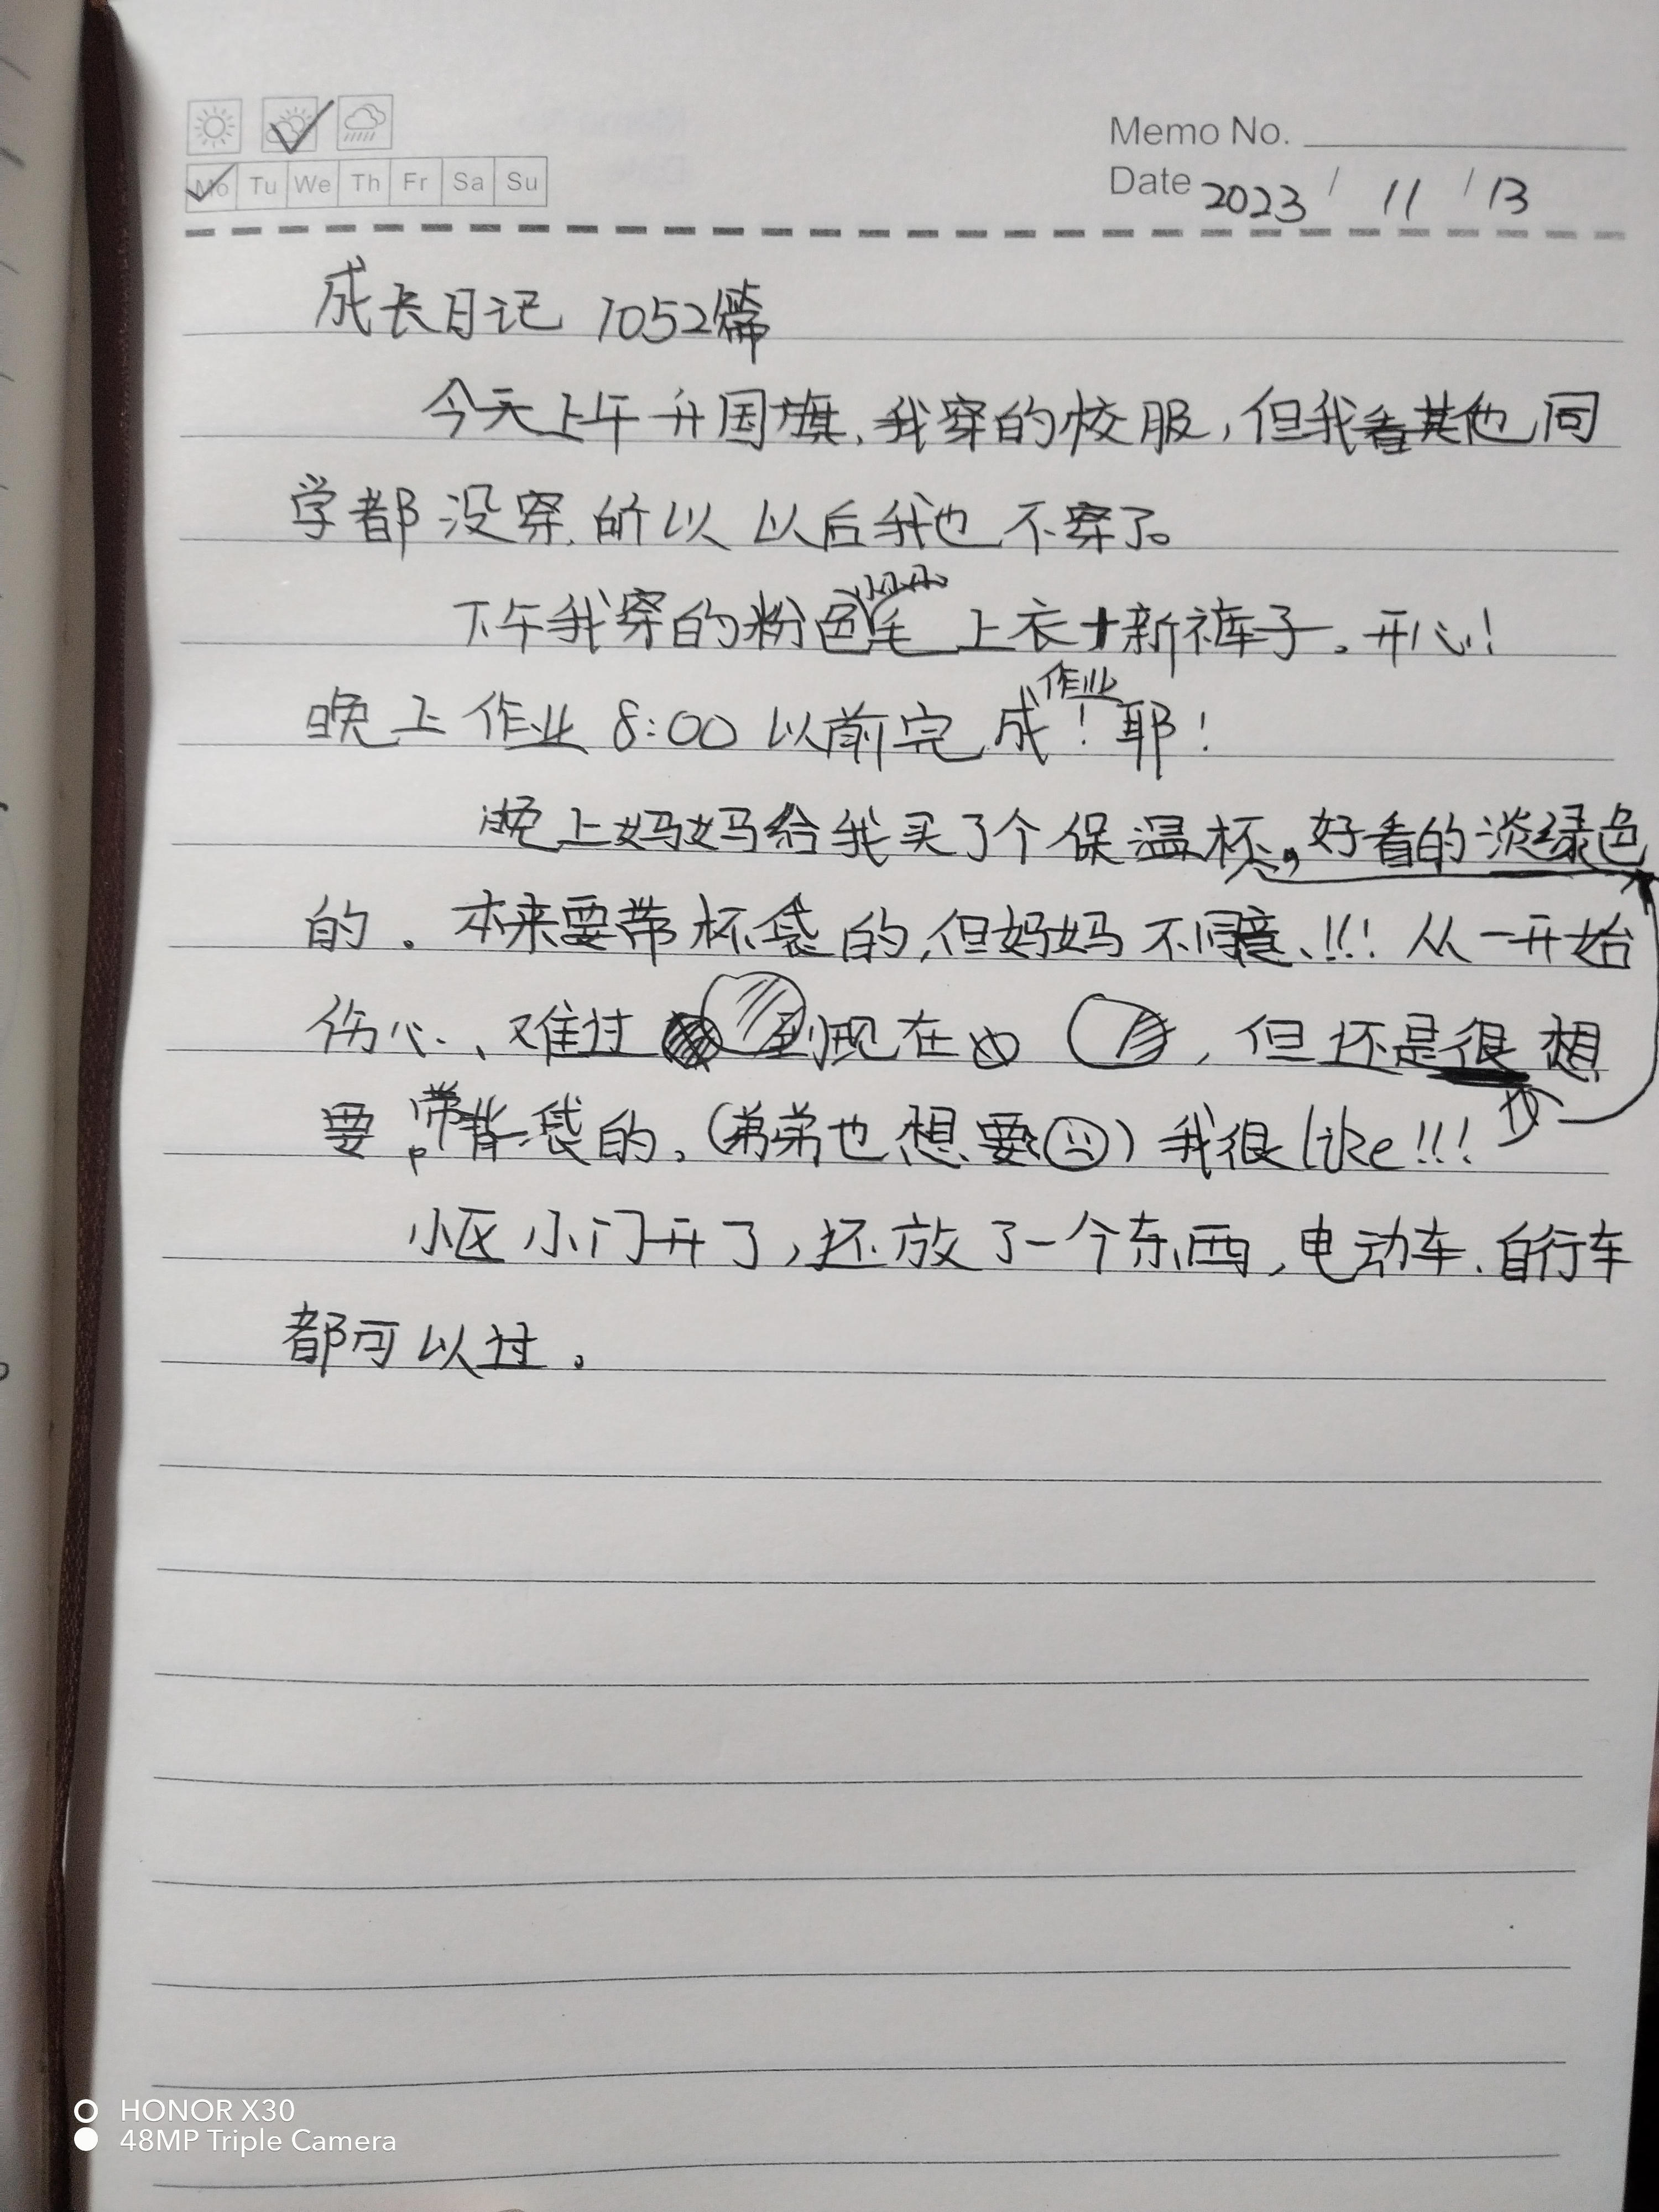 Memo No.
Mo Tu We Th Fr Sa Su
Date 2023 / 11 / 13
成长日记 1052篇
今天上午升国旗,我穿的校服,但我看其他同
学都没穿,所以以后我也不穿了。
下午我穿的粉色毛上衣+新裤子。开心!
作业
晚上作业8:00以前完成!耶!
晚上妈妈给我买了个保温杯,好看的淡绿色
的。本来要带杯袋的,但妈妈不同意、!!!从一开始
伤心、难过到现在,但还是很想
要带背袋的。(弟弟也想要)我很like!!!
小区小门开了,还放了一个东西,电动车、自行车
都可以过。
HONOR X30
48MP Triple Camera